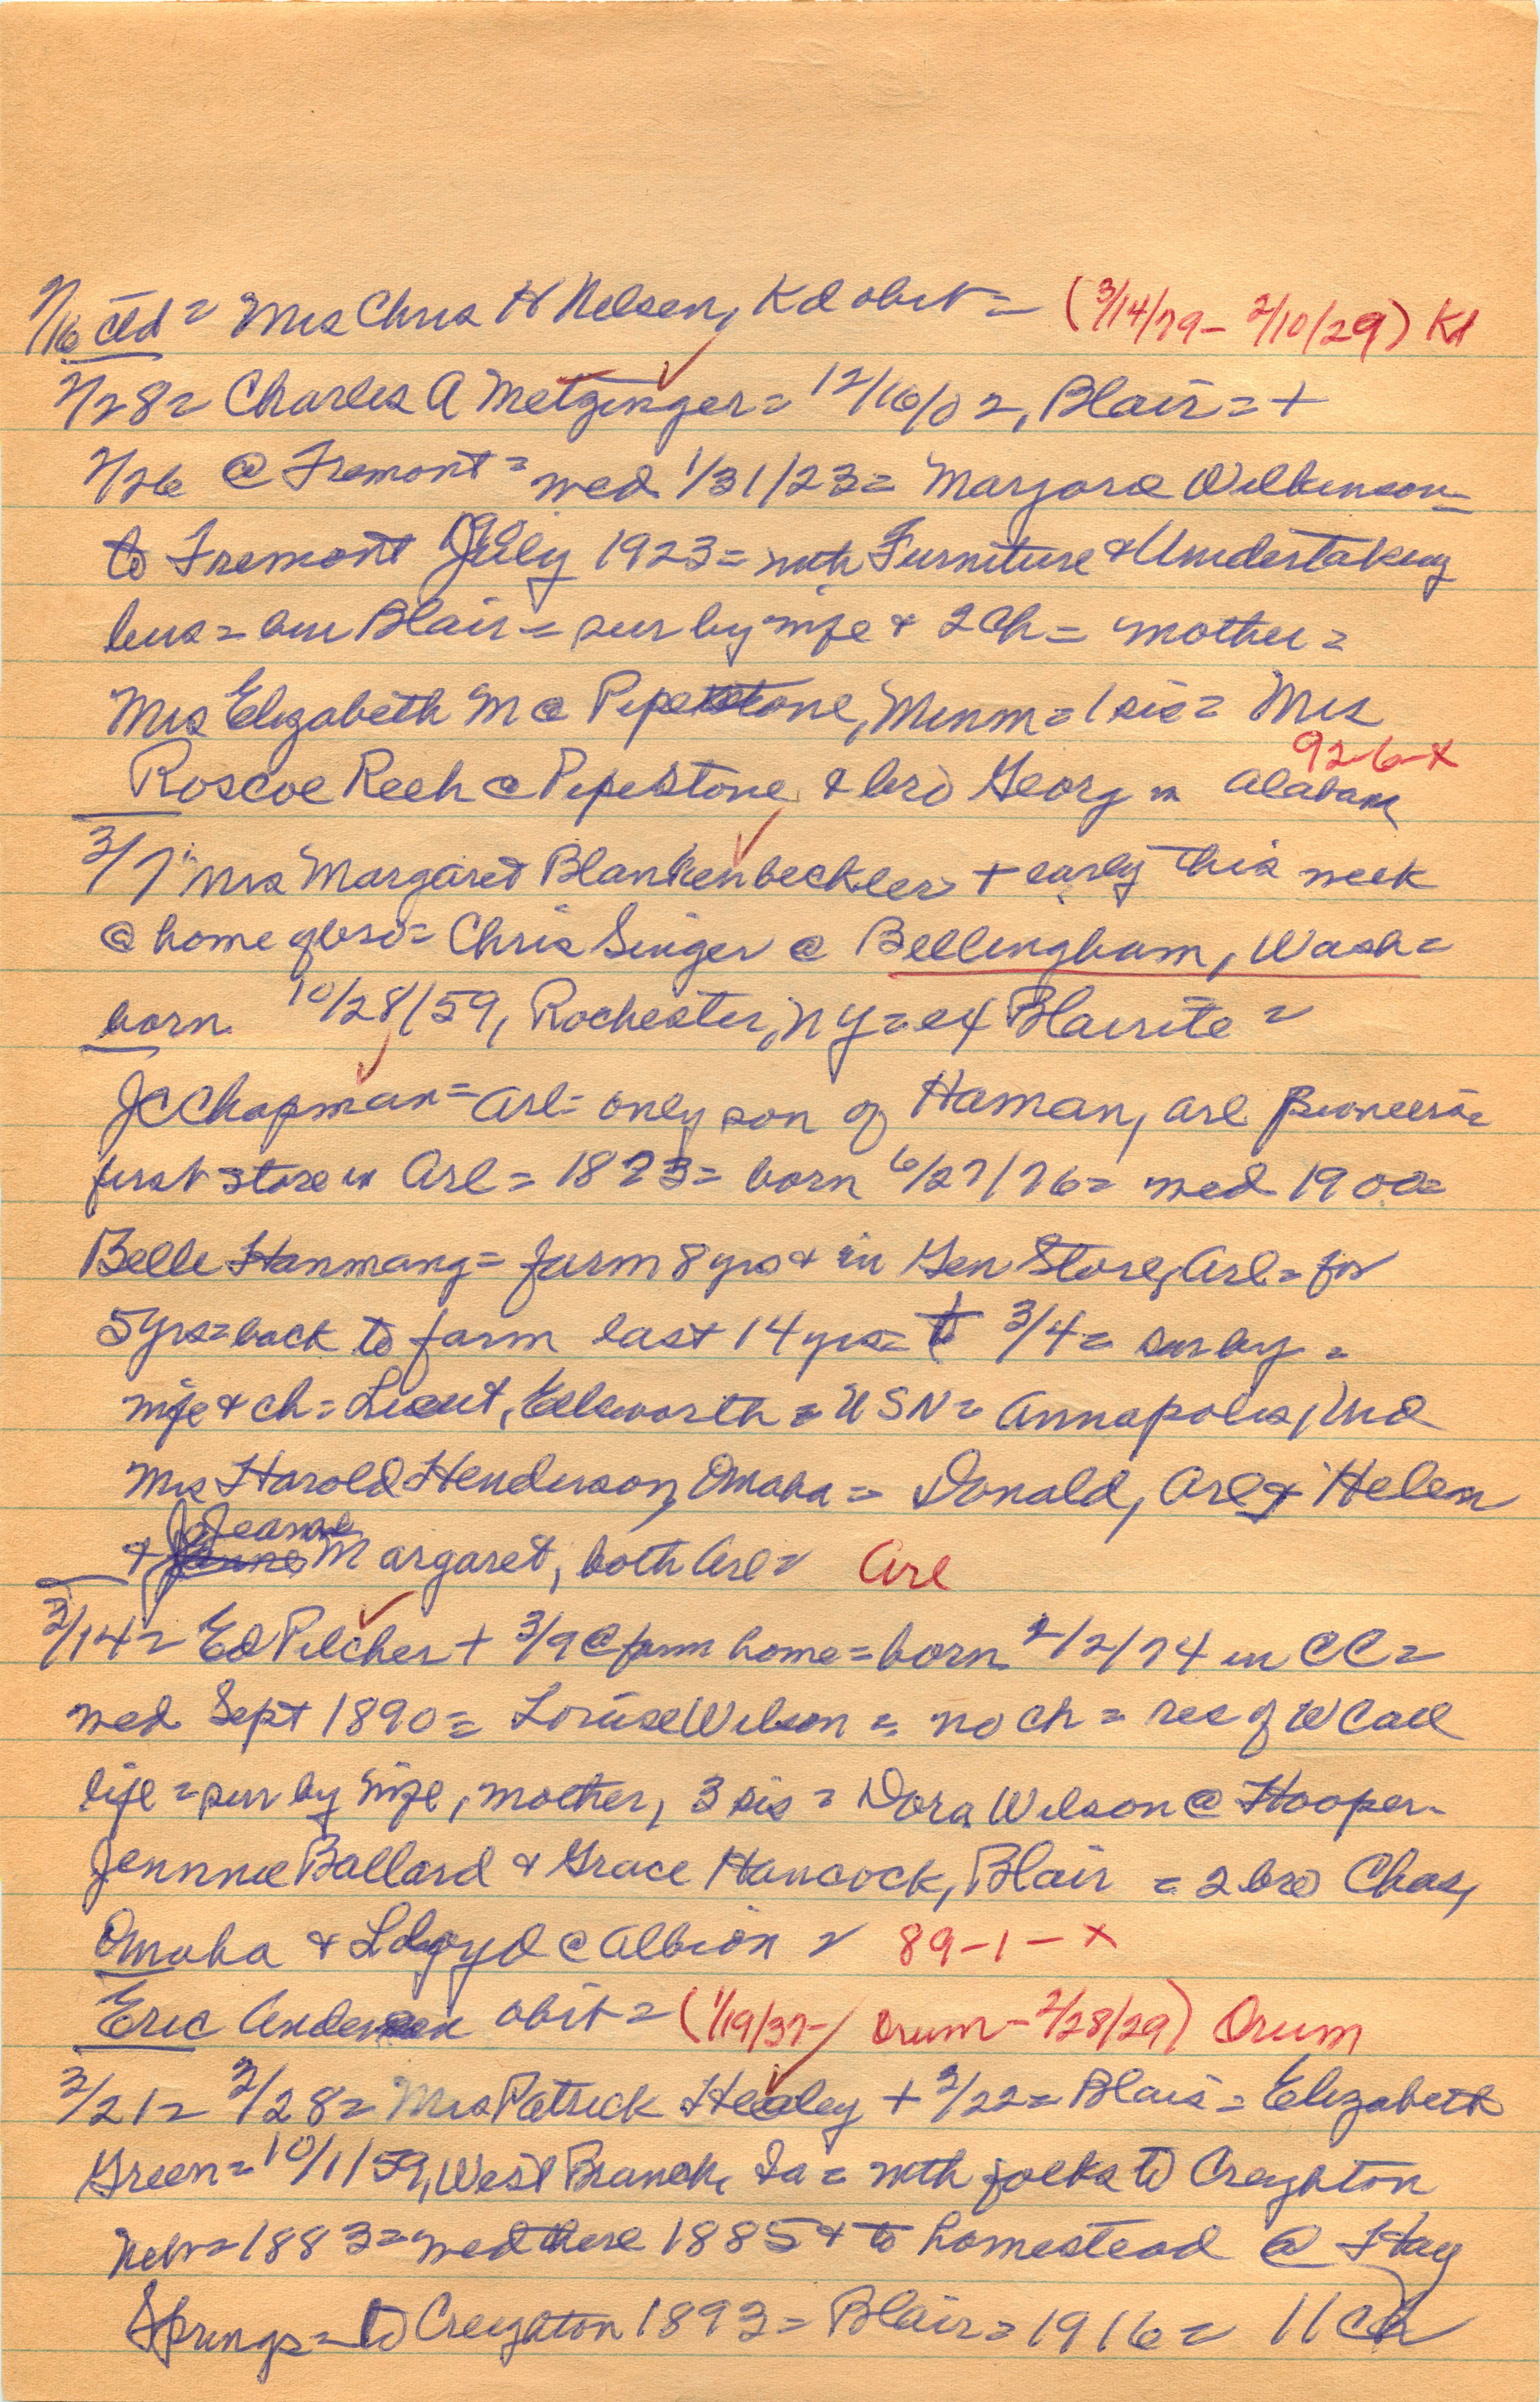 2/16 ctd = Mrs Chris H Nelsen, Kd obit = (3/14/79 - 2/10/29) Kd
2/28 = Charles A Metzinger = 12/16/02, Blair = +
2/26 @ Fremont = wed 1/31/23 = Marjorie Wilkinson =
to Fremont July 1923 = with Furniture & Undertaking
bus = bur Blair = sur by wife & 2 ch = mother =
Mrs Elizabeth M @ Pipestone, Minn = 1 sis = Mrs
Roscoe Reeh @ Pipestone & bro Georg in Alabama 92-6-x
3/7 Mrs Margaret Blankenbeckler + early this week
@ home of bro = Chris Singer @ Bellingham, Wash =
born 10/28/59, Rochester, NY = ex Blairite =
JC Chapman = Arl = only son of Haman, Arl Pioneers =
first store in Arl = 1873 = born 6/27/76 = wed 1900 =
Belle Hanmang = farm 8 yrs & in Gen Store, Arl = for
5 yrs = back to farm last 14 yrs = to 3/4 = sur by =
wife & ch = Lieut, Ellsworth = USN = Annapolis, Md
Mrs Harold Henderson, Omaha = Donald, Arl & Helen
& Jeanne Margaret, both Arl = Arl
3/14 = Ed Pilcher + 3/9 @ farm home = born 2/2/74 in CC =
wed Sept 1890 = Louise Wilson = no ch = res of WC all
life = sur by wife, mother, 3 sis = Dora Wilson @ Hooper =
Jennnie Ballard & Grace Hancock, Blair = 2 bro Chas,
Omaha & Lloyd @ Albion = 89-1-x
Eric Andersen obit = (1/19/37 - Orum - 2/28/29) Orum
3/21 = 2/28 = Mrs Patrick Healey + 2/22 = Blair = Elizabeth
Green = 10/1/59, West Branch, Ia = with folks to Creighton
Nebr = 1883 = wed there 1885 & to homestead @ Hay
Springs = to Creighton 1893 = Blair = 1916 = 11 ch